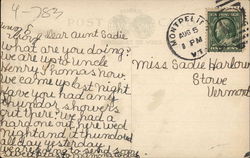 4-783
POST CARD
My dear Aunt Sadie
what are you doing?
we are up to uncle
Henry Thomas now.
we came up last night
Have you had any
thunder showers
out there? we had a
hard one out here wed
night and it thundered
all day yesterday
MONTPELIER
AUG 5
PM
VT.
Miss Sadie Harlow
Stowe
Vermont.